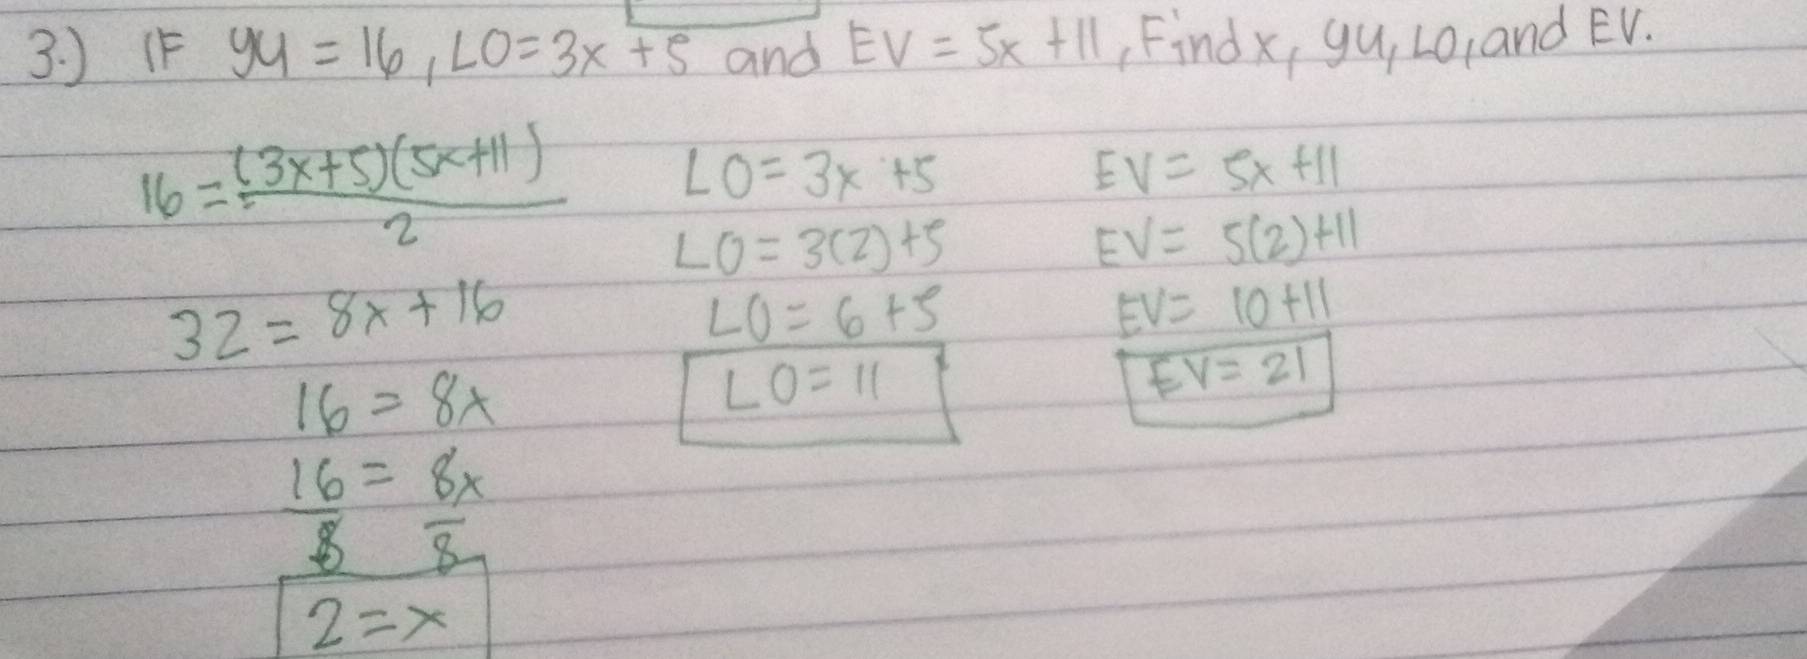 3.) IF YU = 16, LO = 3x + 5 and EV = 5x + 11, Find x, YU, LO, and EV.
16 = (3x+5)(5x+11)
2
32 = 8x + 16
16 = 8x
16 = 8x
8 8
2 = x
LO = 3x + 5
LO = 3(2) + 5
LO = 6 + 5
LO = 11
EV = 5x + 11
EV = 5(2) + 11
EV = 10 + 11
EV = 21